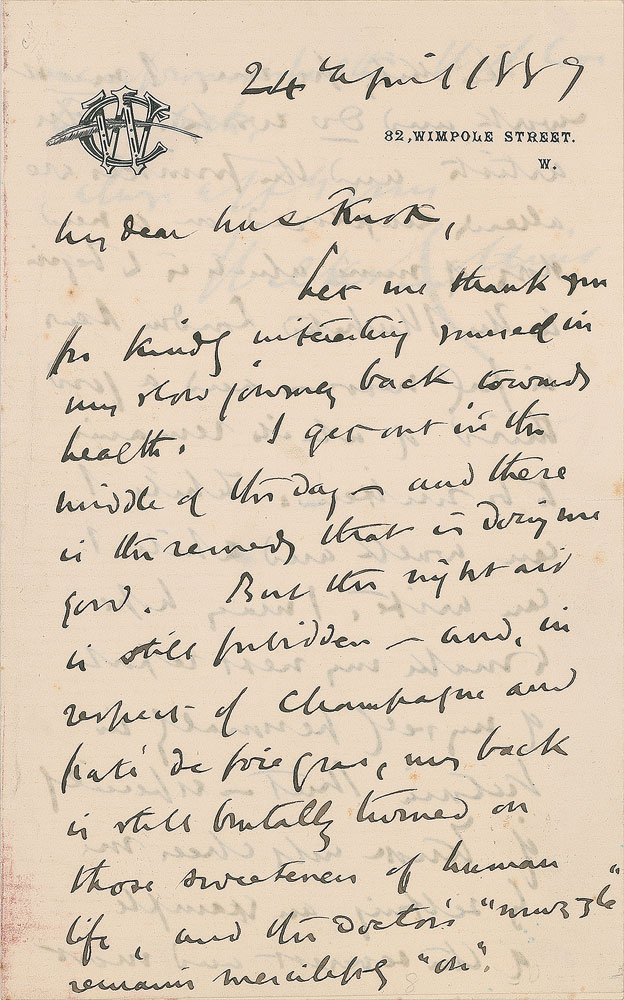 24th April 1889
82, WIMPOLE STREET.
W.
WC
My dear Mrs
Let me thank you
for kindly interesting yourself in
my slow journey back towards
health. I get out in the
middle of the day – and there
is the remedy that is doing me
good. But the night air
is still forbidden – and, in
respect of Champagne and
paté de foie gras, my back
is still brutally turned on
those sweetenesses of human
life, and the Doctor's "muzzle"
remains mercilessly "on".